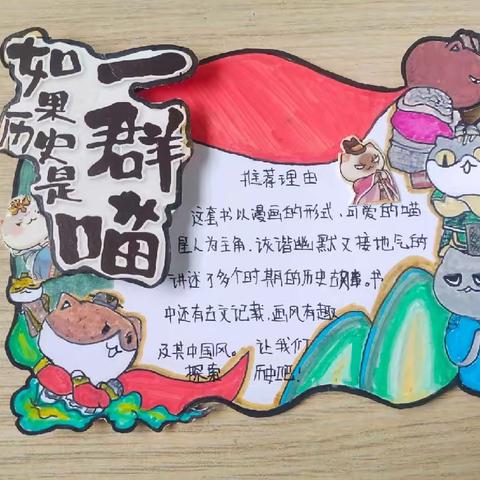 如果历史是
一群喵
推荐理由
这套书以漫画的形式,可爱的喵
星人为主角,诙谐幽默又接地气的
讲述了多个时期的历史故事。书
中还有古文记载,画风有趣
及其中国风。让我们
探索 历史吧!